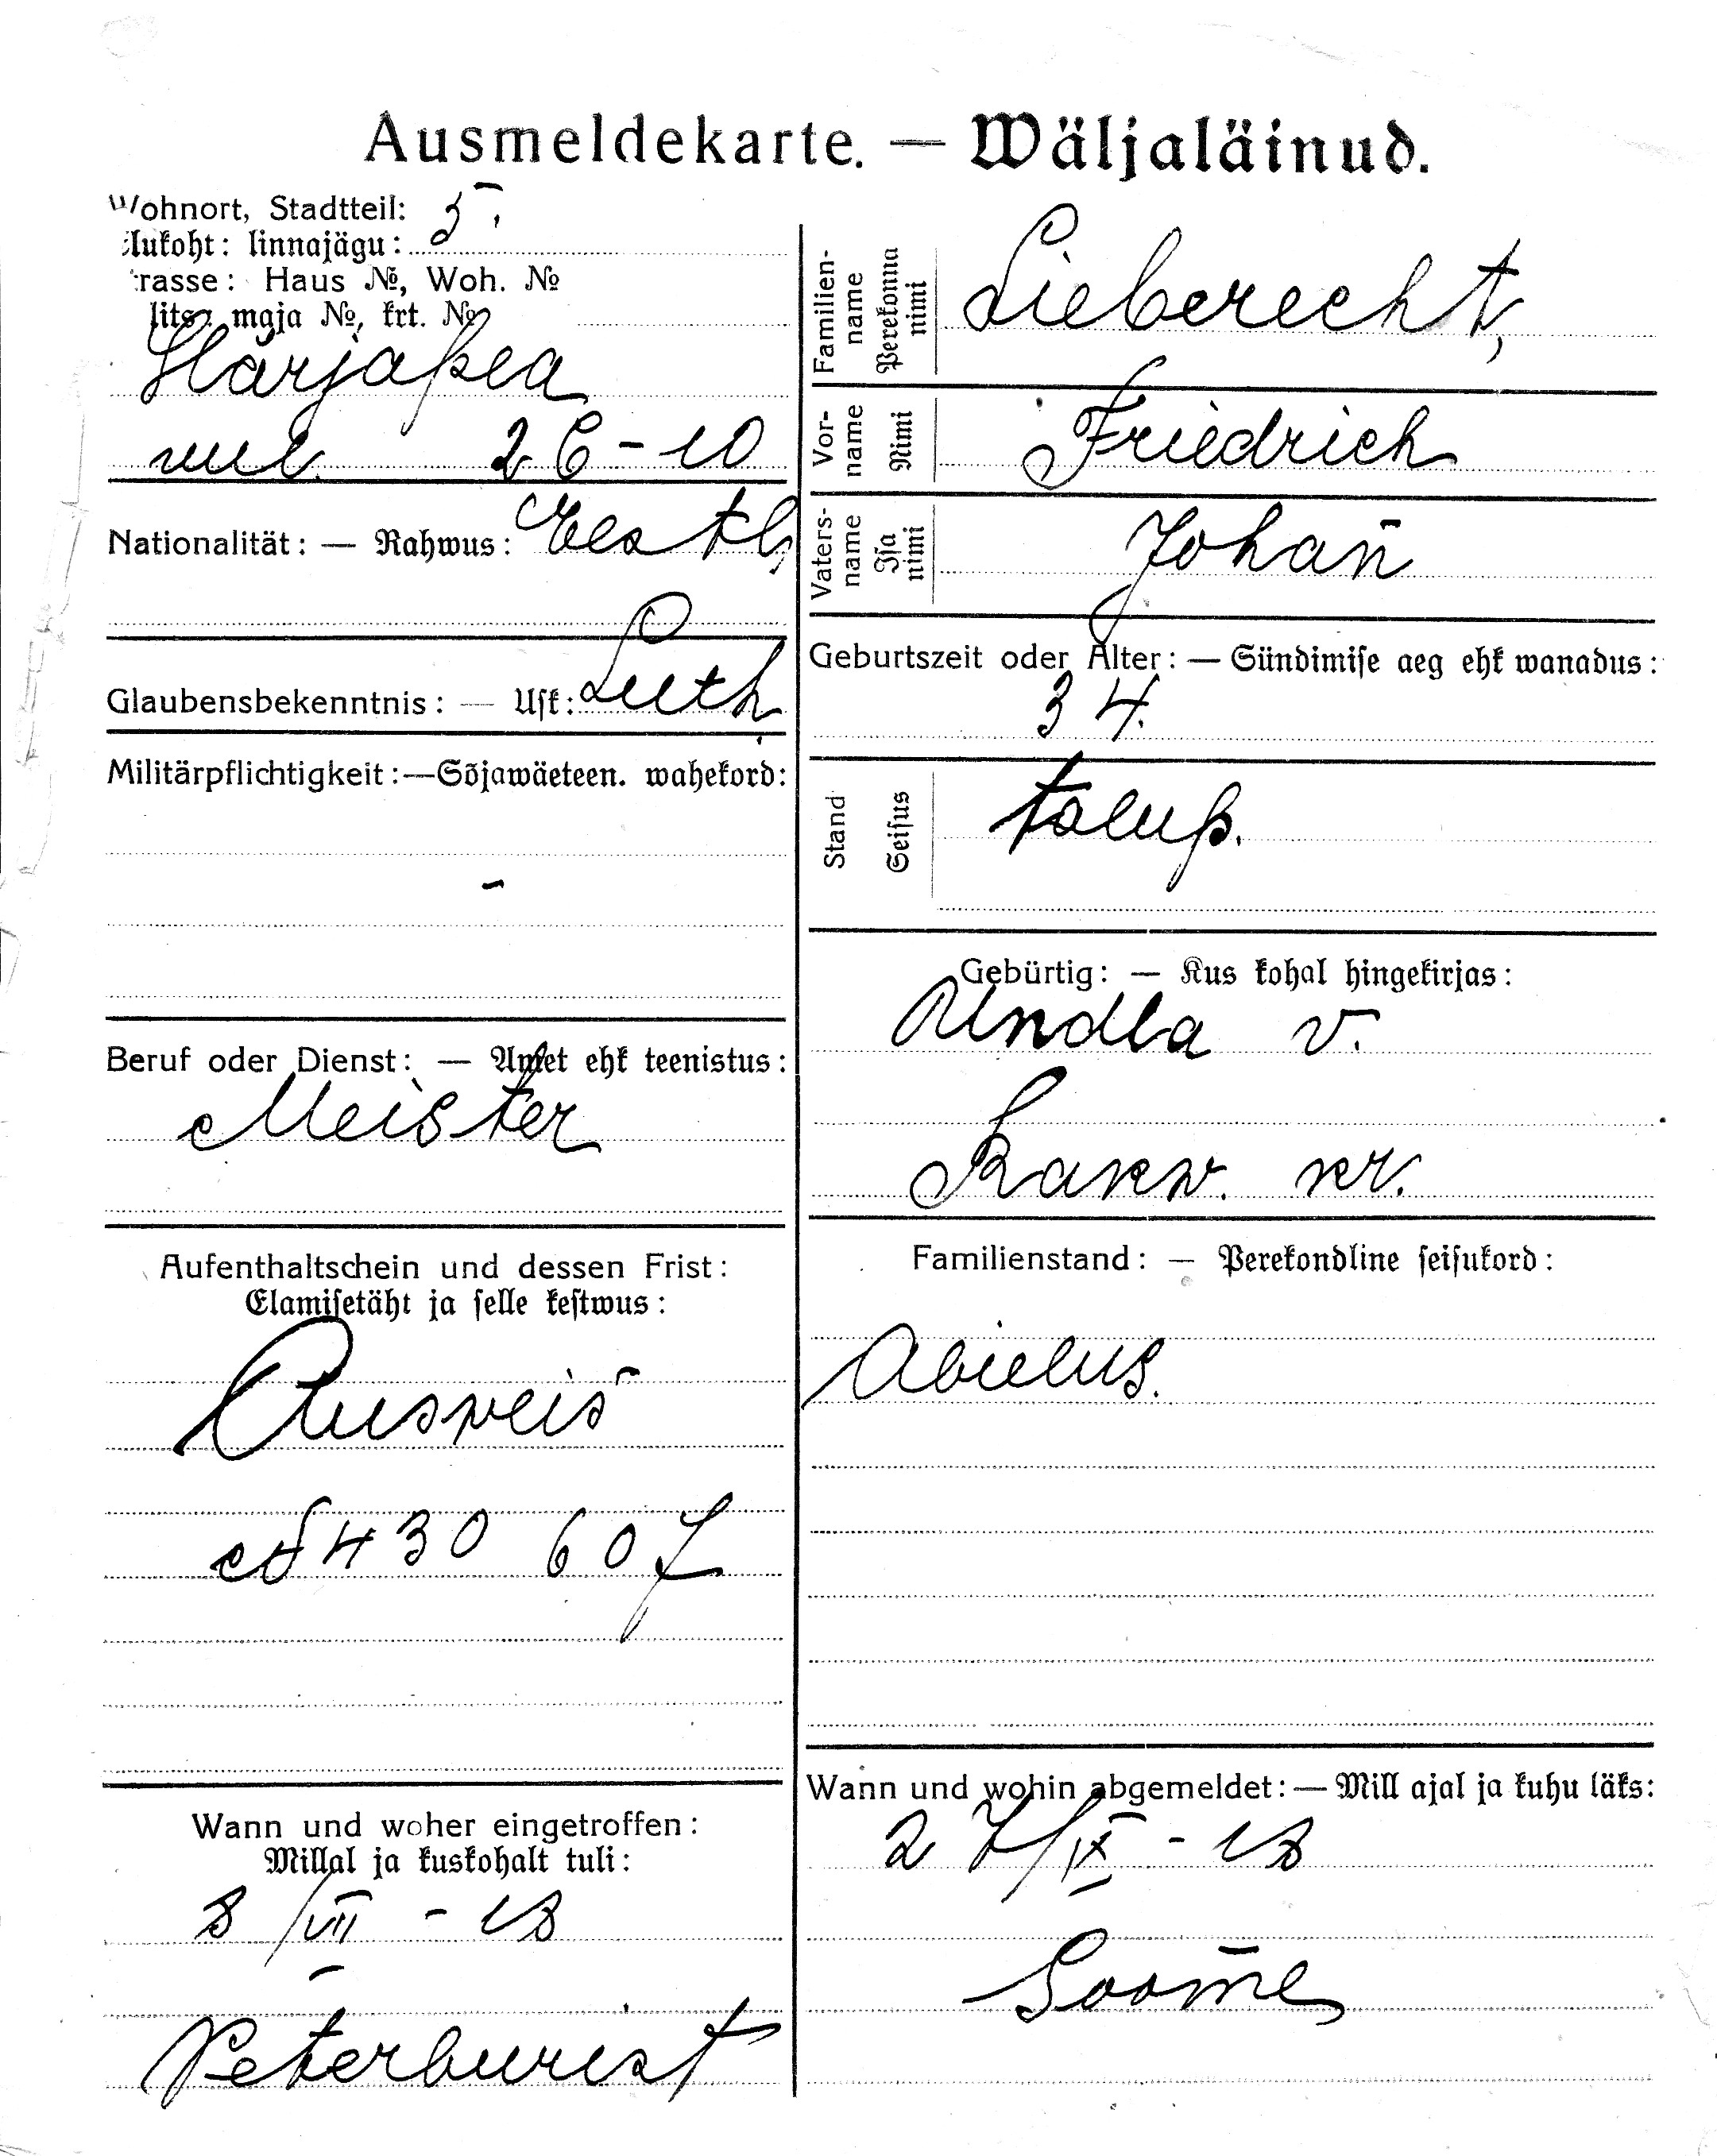 Ausmeldekarte. — Wäljaläinud.
Wohnort, Stadtteil: 5.
Elukoht: linnajägu:
trasse: Haus №, Woh. №
lits: maja №, krt. №
Härjapea
uul. 26-10
Nationalität: — Rahwus: Eestl,
Glaubensbekenntnis: — Usk: Luth
Militärpflichtigkeit: — Sõjawäeteen. wahekord:
-
Beruf oder Dienst: — Amet ehk teenistus:
Meister
Aufenthaltschein und dessen Frist:
Elamisetäht ja selle kestwus:
Ausweis
№ 430 607
Wann und woher eingetroffen:
Millal ja kuskohalt tuli:
8/VII - 18
Peterburist
Familien-
name
Perekonna
nimi
Lieberecht,
Vor-
name
Nimi
Friedrich
Vaters-
name
Isa
nimi
Johan̄
Geburtszeit oder Alter: — Sündimise aeg ehk wanadus:
34.
Stand
Seisus
talup.
Gebürtig: — Kus kohal hingekirjas:
Undla v.
Rakw. kr.
Familienstand: — Perekondline seisukord:
Abielus.
Wann und wohin abgemeldet: — Mill ajal ja kuhu läks:
27/IX - 18
Soom̄e